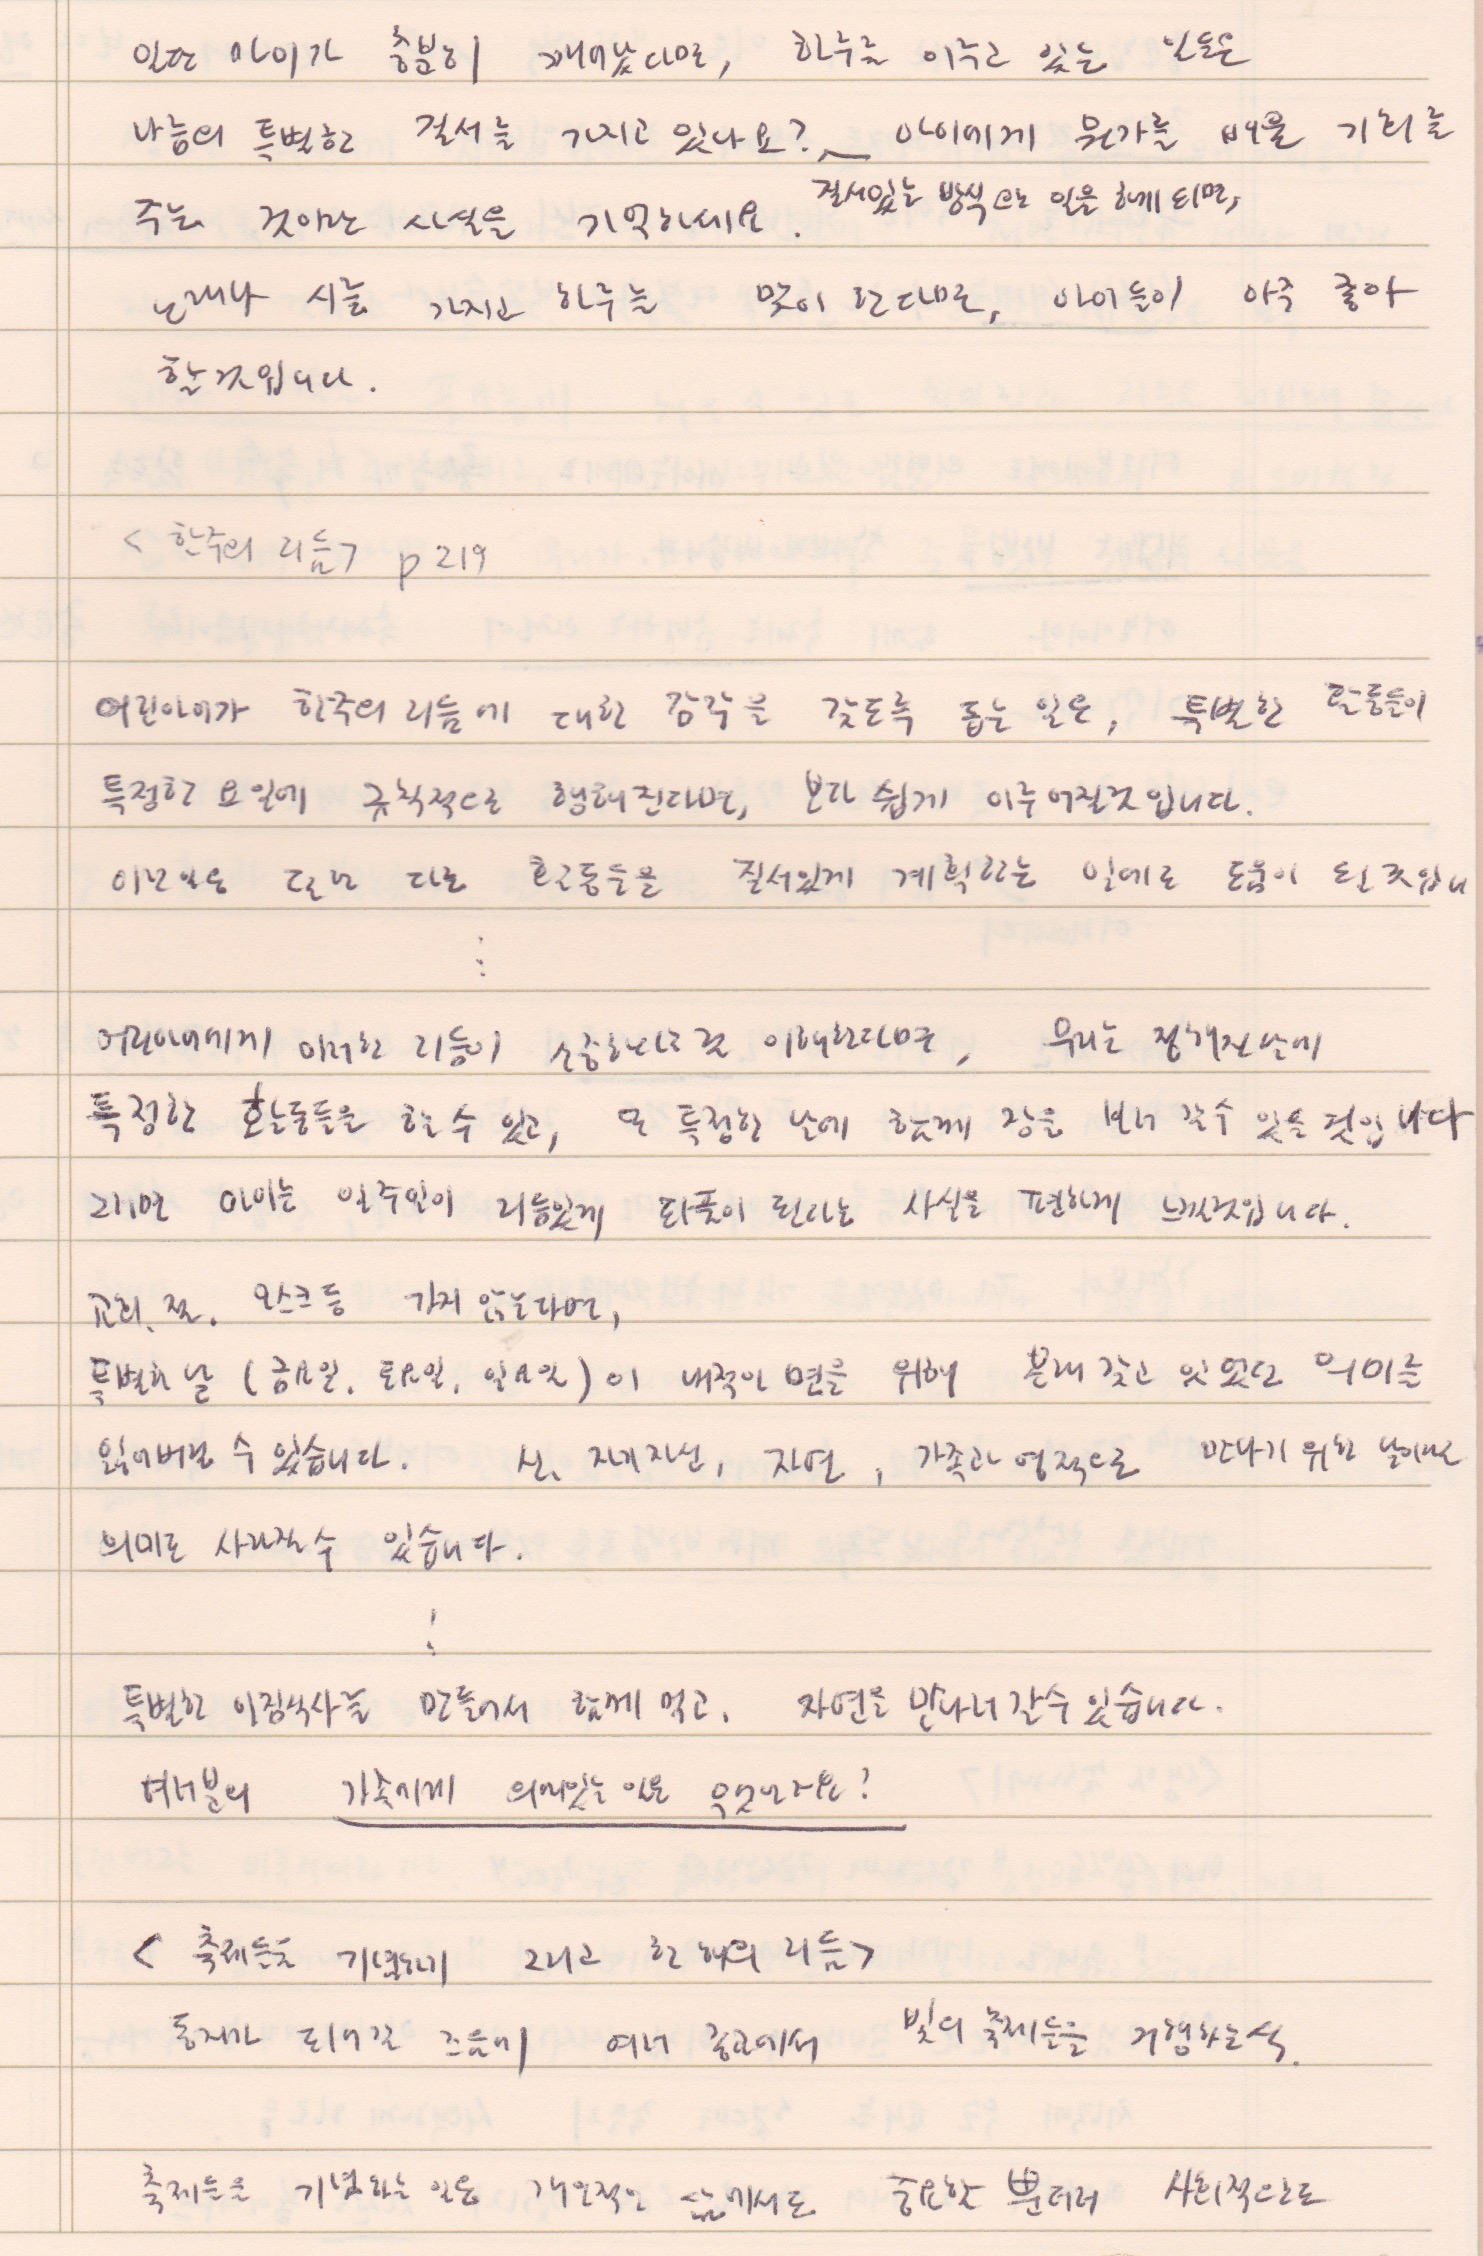 일단 아이가 충분히 깨어났다면, 하루를 이루고 있는 일들은
나름의 특별한 질서를 가지고 있나요? 아이에게 뭔가를 배울 기회를
질서있는 방식으로 일을 하게 되면,
주는 것이란 사실을 기억하세요.
노래나 시를 가지고 하루를 맞이 한다면, 아이들이 아주 좋아
할것입니다.
<한주의 리듬> p219
어린아이가 한주의 리듬에 대한 감각을 갖도록 돕는 일은, 특별한 활동들이
특정한 요일에 규칙적으로 행해진다면, 보다 쉽게 이루어질것입니다.
이런일은 달마다 활동들을 질서있게 계획하는 일에도 도움이 될것입니
⋮
어린아이에게 이러한 리듬이 소중하다고 이해한다면, 우리는 정해진날에
특정한 활동들을 할 수 있고, 또 특정한 날에 함께 장을 보러 갈수 있을 것입니다
그러면 아이는 일주일이 리듬있게 되풀이 된다는 사실을 편하게 느낄것입니다.
교회, 절, 모스크등 가지 않는다면,
특별한 날 (금요일, 토요일, 일요일)이 내적인 면을 위해 본래 갖고 있었던 의미를
잃어버릴 수 있습니다. 신, 자기자신, 자연, 가족과 영적으로 만나기 위한 날이라는
의미로 사라질수 있습니다.
⋮
특별한 아침식사를 만들어서 함께 먹고, 자연을 만나러 갈수 있습니다.
여러분의 가족에게 의미있는 일은 무엇인가요?
<축제들을 기념하기 그리고 한 해의 리듬>
동지가 되어갈 즈음에 여러 종교에서 빛의 축제들을 거행하는식.
축제들을 기념하는 일은 개인적인 삶에서도 중요할 뿐더러 사회적으로